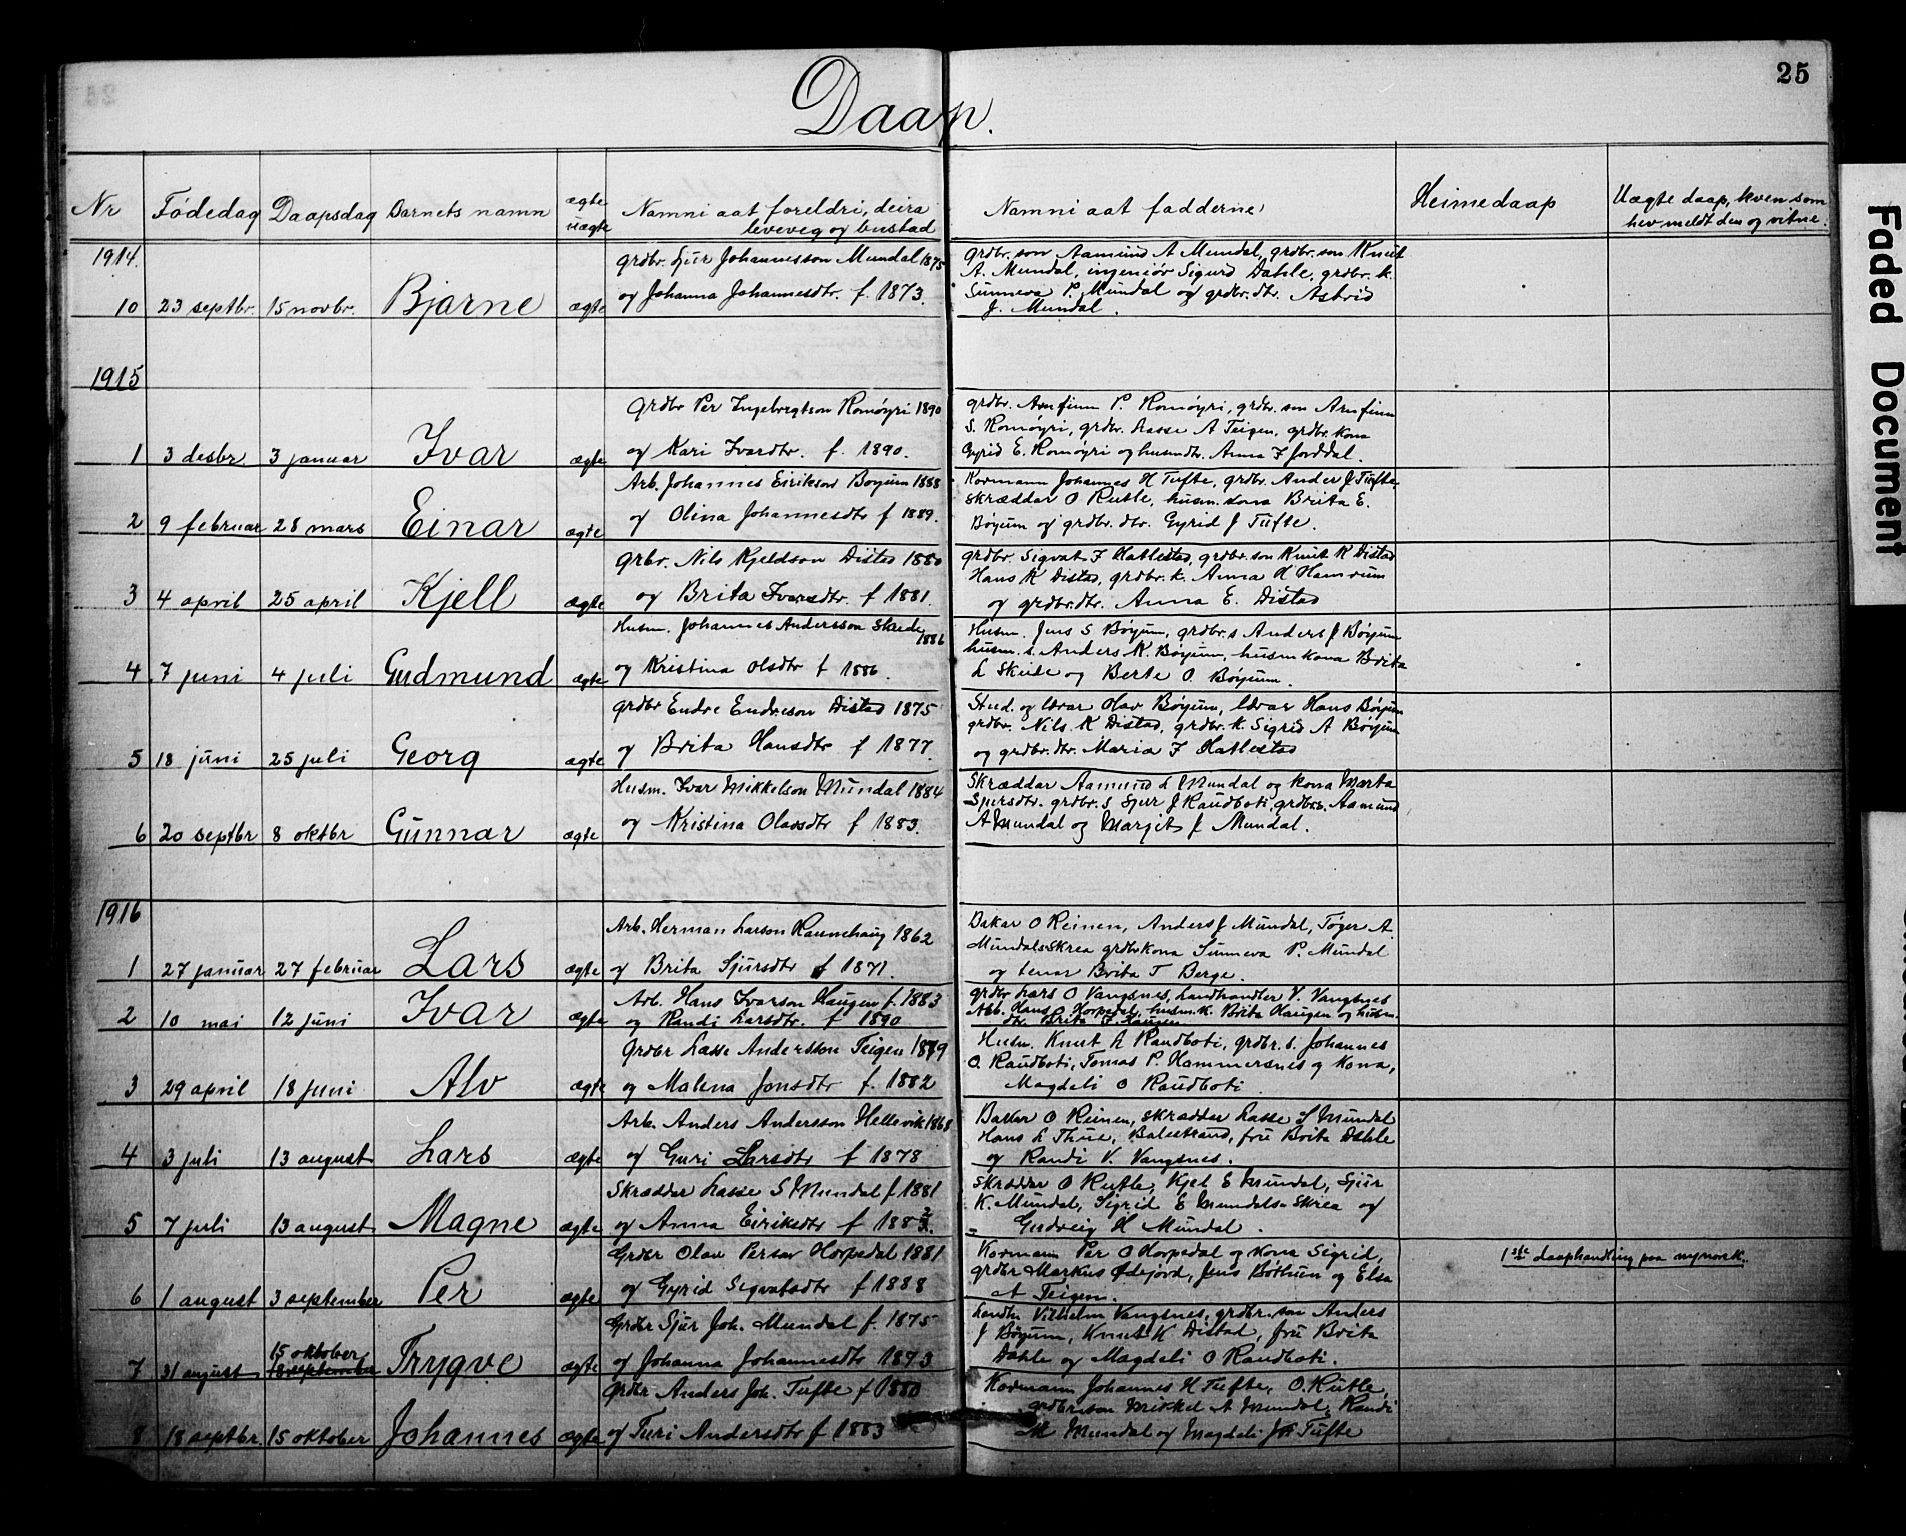 25
Daap.
Nr Fødedag Daapsdag Barnets namn ægte uægte Namni aat foreldri, deira leveveg og bustad Namni aat fadderne Heimedaap Uægte daap, kven som hev meldt den og vitne.
1914.
10 23 septbr. 15 novbr. Bjarne ægte
grdbr. Sjur Johannesson Mundal 1875
og Johanna Johannesdtr. f. 1873.
grdbr. son Aamund A Mundal, grdbr. son Knut
A. Mundal, ingeniør Sigurd Dahle, grdbr. k.
Sunneva P. Mundal og grdbr. dtr. Astrid
J. Mundal.
1915
1 3 desbr. 3 januar Ivar ægte
Grdbr Per Ingebrigtson Romøyri 1890
og Kari Ivarsdtr. f. 1890.
grdbr. Arnfinn P. Romøyri, grdbr. son Arnfinn
S. Romøyri, grdbr. Lasse A Teigen, grdbr. kona
Gyrid E. Romøyri og husmdtr. Anna I Jorddal.
2 9 februar 28 mars Einar ægte
Arb. Johannes Eirikson Bøyum 1888
og Olina Johannesdtr f 1889.
Kormann Johannes H Tufte, grdbr. Anders J Tufte,
skræddar O Rutle, husm. kona Brita E.
Bøyum og grdbr. dtr. Gyrid J Tufte.
3 4 april 25 april Kjell ægte
Grbr. Nils Kjeldson Distad 1880
og Brita Ivarsdtr. f 1881.
grdbr. Sigvat I Hatlestad, grdbr. son Knut K Distad
Hans K Distad, grdbr. k. Anna H Hamrum
og grdbr. dtr. Anna E. Distad
4 7 juni 4 juli Gudmund ægte
Husm. Johannes Andersson Skeide
1886
og Kristina Olsdtr f 1886.
Husm. Jens S Bøyum, grdbr. s Anders J Bøyum
husm. s. Anders K. Bøyum, husm kona Brita
L Skeide og Berte O. Bøyum.
5 18 juni 25 juli Georg ægte
grdbr Endre Endreson Distad 1875
og Brita Hansdtr f 1877.
Stud. og lærar Olav Bøyum, lærar Hans Bøyum
grdbr. Nils K Distad, grdbr. k. Sigrid A Bøyum
og grdbr. dtr. Maria I Hatlestad
6 20 septbr 8 oktbr Gunnar ægte
Husm. Ivar Mikkelson Mundal 1884
og Kristina Olavsdtr f 1883.
Skræddar Aamund L Mundal og kona Marta
Sjursdtr. grdbr. s Sjur J Raudboti, grdbr. s. Aamund
A Mundal og Marjit J Mundal.
1916
1 27 januar 27 februar Lars ægte
Arb. Herman Larson Raunehaug 1862
og Brita Sjursdtr f 1871.
Bakar O Reinen, Anders J Mundal, Tøger A
Mundal-Skrea grdbr kona Sunneva P. Mundal
og tenar Brita T Berge.
2 10 mai 12 juni Ivar ægte
Arb. Hans Ivarson Haugen f. 1883
og Randi Larsdtr. f 1890
grdbr Lars O Vangsnes, Landhandler V. Vangsnes
Arb. Hans Horpedal, husm. k. Brita Haugen og husm.
dtr. Brita I. Haugen
3 29 april 18 juni Alv ægte
Grdbr Lasse Andersson Teigen 1879
og Malena Jonsdtr f. 1882
Husm. Knut L Raudboti, grdbr. s. Johannes
O. Raudboti, Tomas P. Hammersnes og kona,
Magdeli O Raudboti
4 3 juli 13 august Lars ægte
Arb. Anders Andersson Hellevik 1868
og Guri Larsdtr f 1878
Bakar O Reinen, skræddar Lasse S Mundal
Hans L Thue, Balestrand, fru Brita Dahle
og Randi V. Vangsnes.
5 7 juli 13 august Magne ægte
Skræddar Lasse S Mundal f. 1881
og Anna Eiriksdtr f 1882.
skræddar O Rutle, Kjel E Mundal, Sjur
K. Mundal, Sigrid E Mundals-Skrea og
Gudveig H Mundal.
6 1 august 3 september Per ægte
Grdbr Olav Person Horpedal 1881
og Gyrid Sigvatsdtr f 1888
Kormann Per O Horpedal og kona Sigrid,
grdbr Markus Ødejord, Jens Bøthun og Elsa
A Teigen.
1ste daaphandling paa nynorsk.
7 31 august 15 oktober
18 september Trygve ægte
Grdbr Sjur Joh. Mundal f. 1875
og Johanna Johannesdtr 1873
Landh. Vilhelm Vangsnes, grdbr. son Anders
J Bøyum, Knut K Distad, fru Brita
Dahle og Magdeli O Raudboti.
8 18 septbr. 15 oktober Johannes ægte
Grdbr Anders Joh. Tufte f 1880
og Turi Andersdtr f 1883
Kormann Johannes H Tufte, O. Rutle,
grdbr son Mikkel A Mundal, Randi
M Mundal og Magdeli Tufte
Faded Document